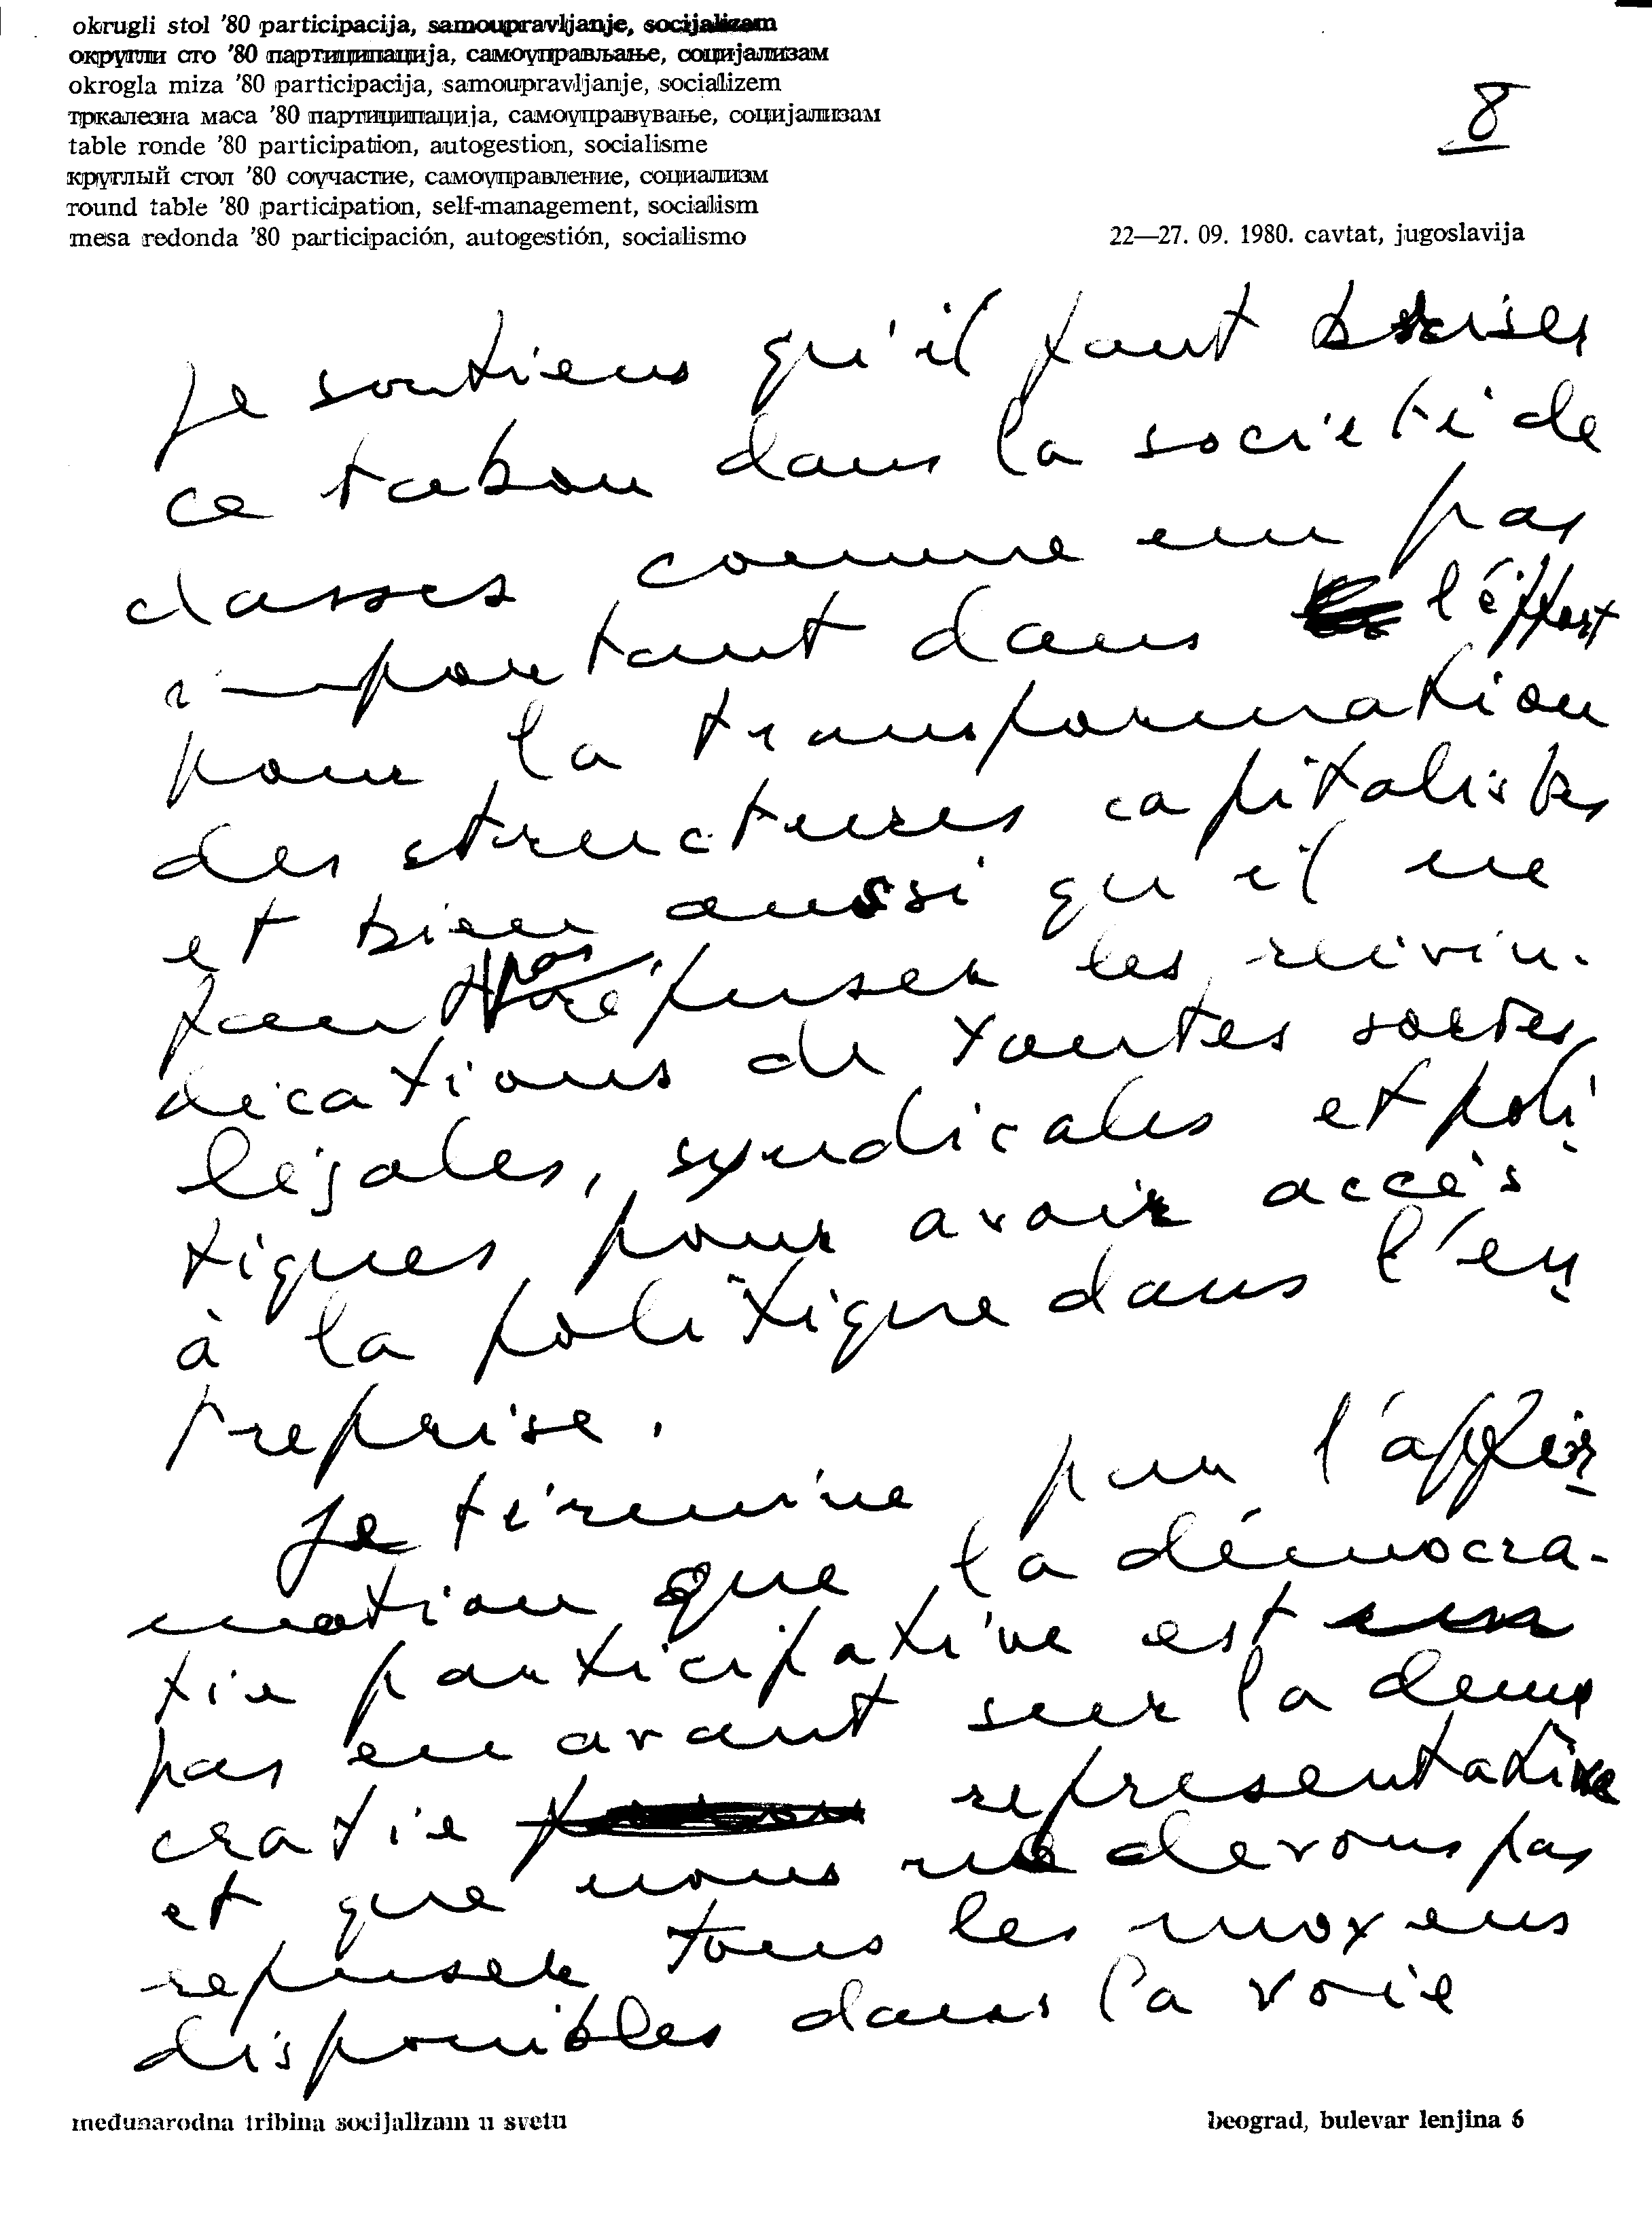 okrugli stol '80 participacija, samoupravljanje, socijalizam
округли сто '80 партиципација, самоуправљање, социјализам
okrogla miza '80 participacija, samoupravljanje, socializem
тркалезна маса '80 партиципација, самоуправување, социјализам
table ronde '80 participation, autogestion, socialisme
круглый стол '80 соучастие, самоуправление, социализм
round table '80 participation, self-management, socialism
mesa redonda '80 participación, autogestión, socialismo
8
22—27. 09. 1980. cavtat, jugoslavija
Je soutiens qu'il faut briser
ce tabou dans la societé de
classes comme un pas
important dans l'éffort
pour la transformation
des structures capitalistes
et bien aussi qu'il ne
faut pas réfuser les reivin-
dications de toutes sortes,
légales, syndicales et poli
tiques pour avoir accès
à la politique dans l'en
treprise.
Je términe par l'affir
mation que la démocra-
tie participative est un
pas en avant sur la demo
cratie representative
et que nous ne devons pas
refuser tous les moyens
disponibles dans la voie
međunarodna tribina socijalizam u svetu
beograd, bulevar lenjina 6